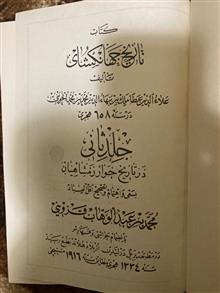 كتاب
تاريخ جهانگشای
تأليف
علاء الدين عطا ملك بن بهاء الدين محمد بن محمد الجوينی
در سنه ۶۵۸ هجری
جلد ثانی
در تاريخ خوارزمشاهيان
بسعی و اهتمام و تصحيح اقلّ العباد
محمد بن عبد الوهّاب قزوينی
سنه ۱۳۳۴ هجری مطابق سنه ۱۹۱۶ مسيحی